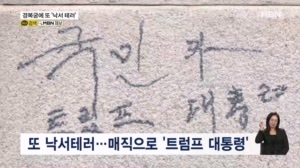 경복궁에 또 '낙서 테러'
MBN
국민의
트럼프 대통령
또 낙서테러…매직으로 '트럼프 대통령'